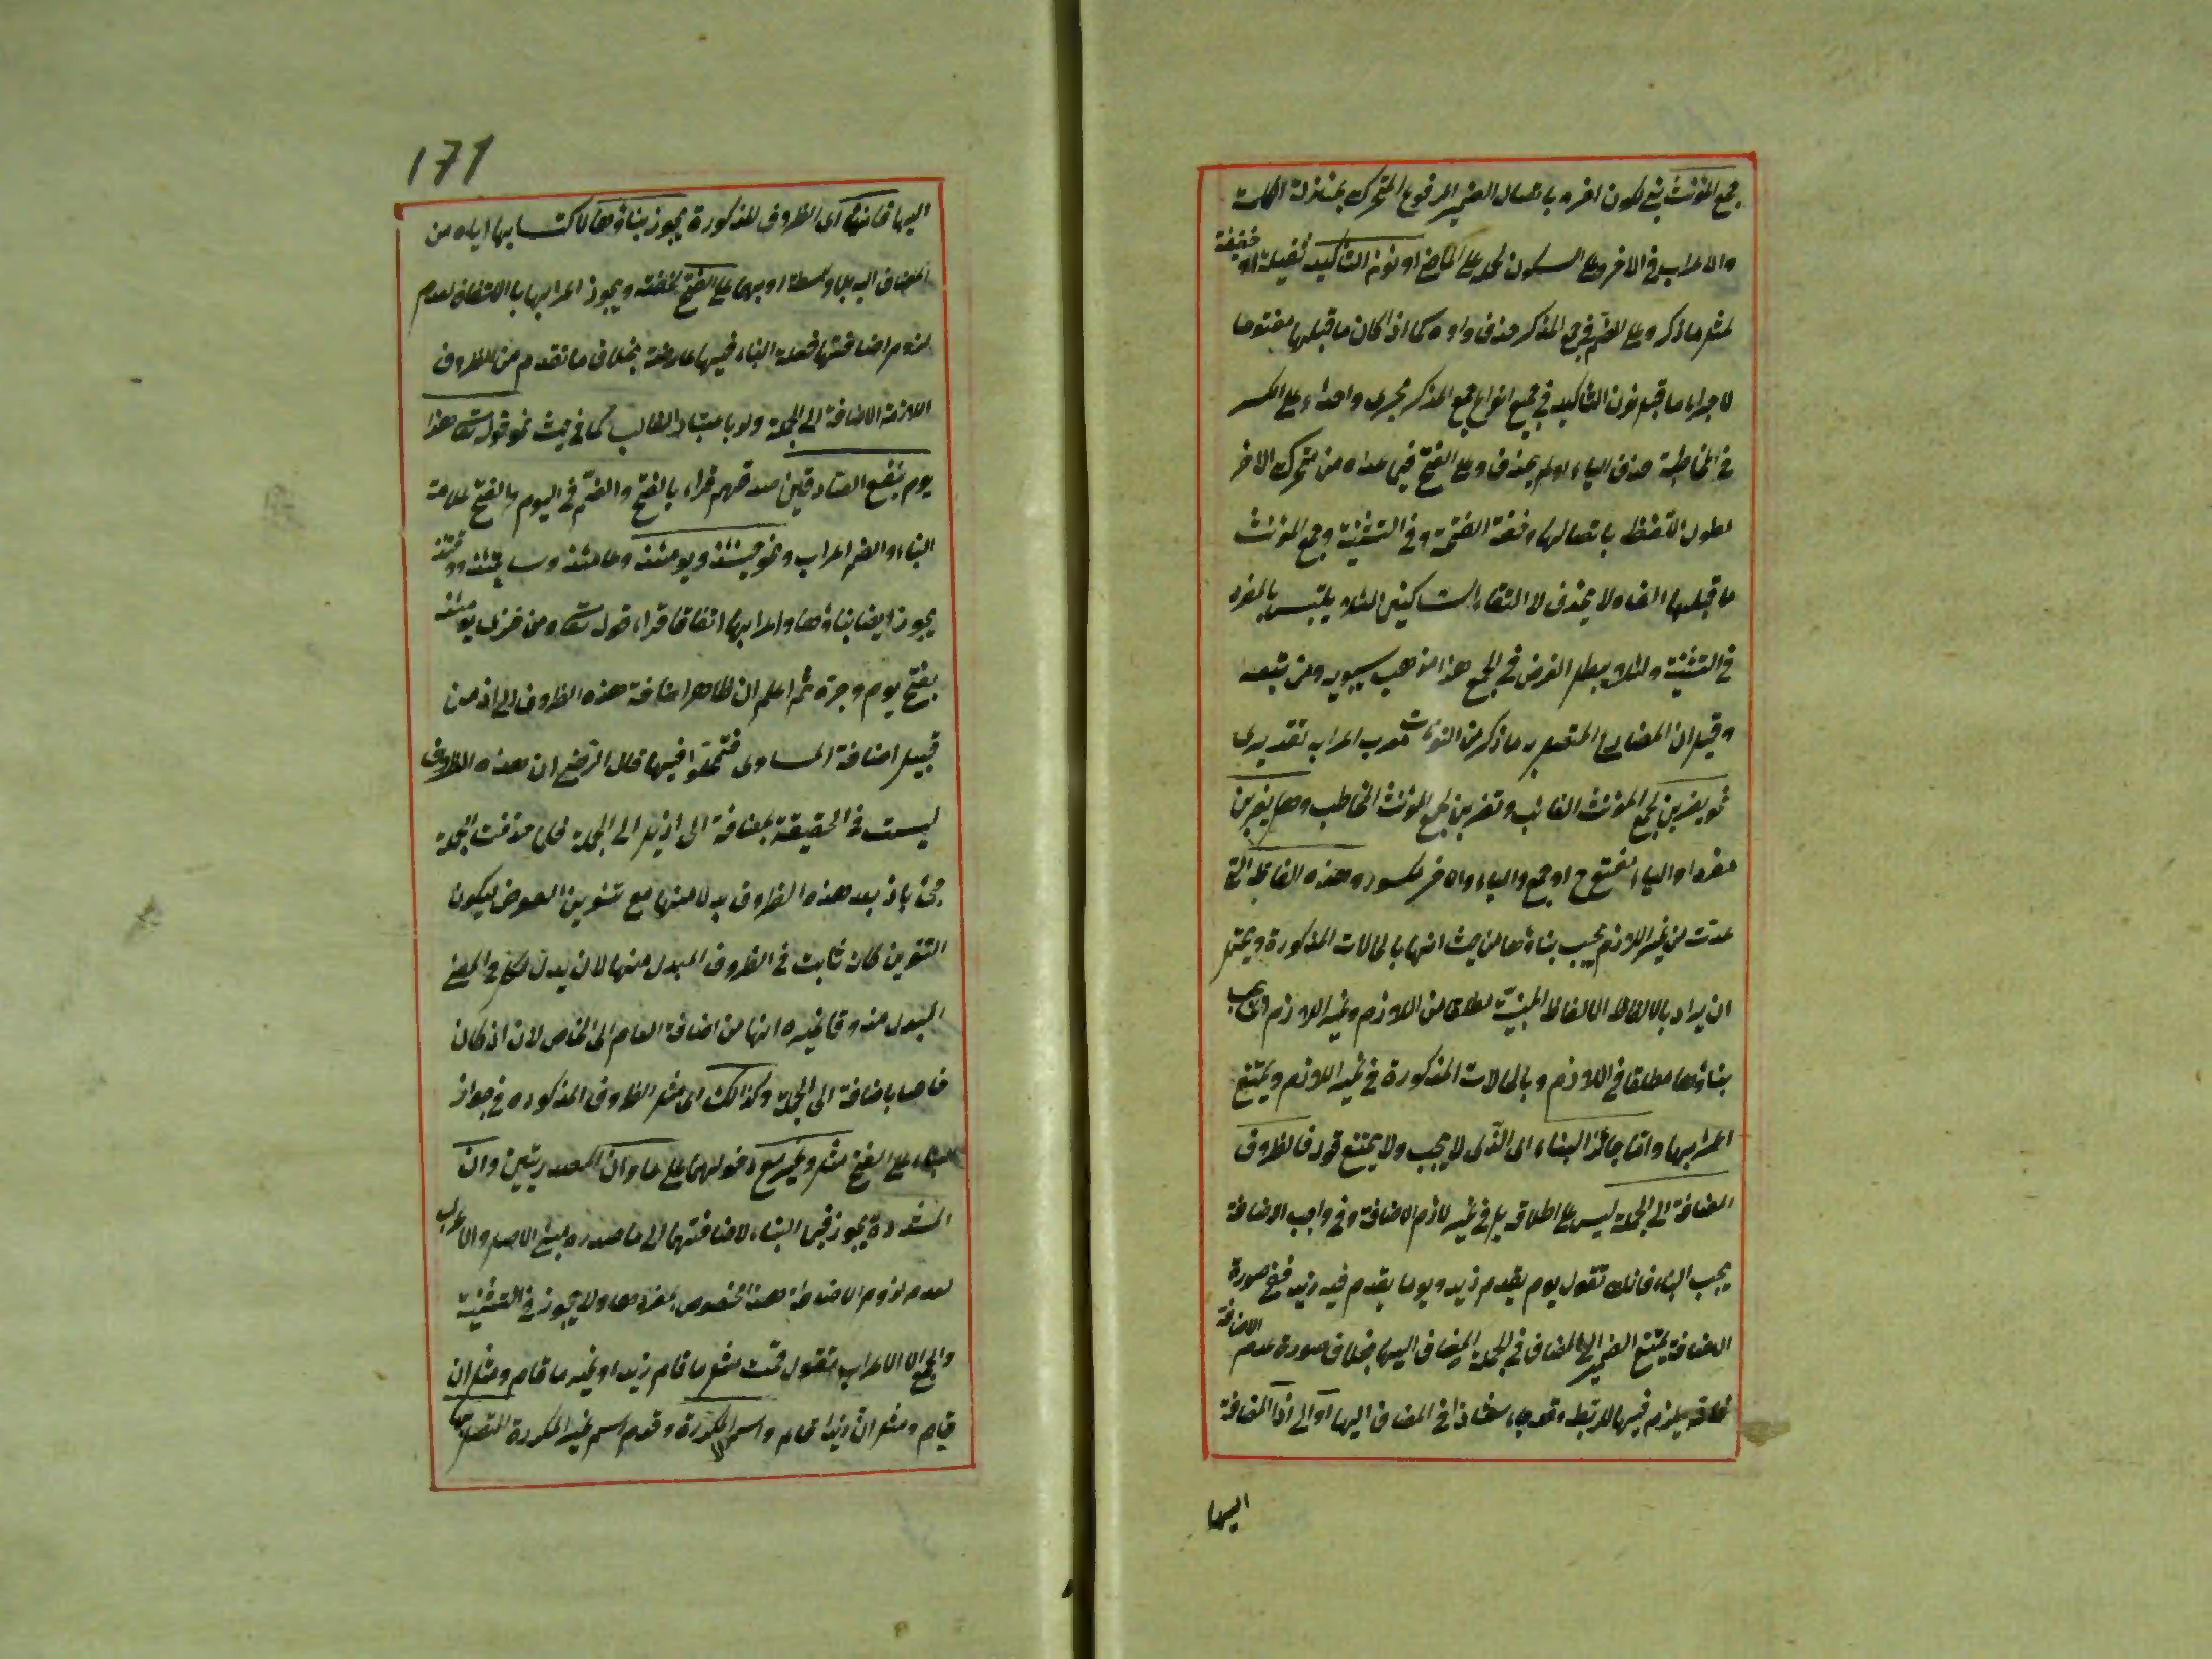 جمع المؤنث بنى لكون اخره باتصال الضمير المرفوع المتحرك بمنزلة الكلمة
والاعراب في الاخر وعلى السكون لحمله على الماضي او نون التأكيد ثقيلة او خفيفة
لمثل ما ذكر وعلى الضم في جمع المذكر حذف واوه كما اذا كان ما قبلها مفتوحا
لاجراء ما قبل نون التأكيد في جميع انواع جمع المذكر مجرى واحدا وعلى الكسر
في المخاطبة حذف الياء او لم يحذف وعلى الفتح فيما عداه من متحرك الاخر
لطول اللفظ باتصالها وخفة الفتحة وفي التثنية وجمع المؤنث
ما قبلها الف ولا يحذف لالتقاء الساكنين لئلا يلتبس بالمفرد
في التثنية ولئلا يبطل الغرض في الجمع هذا مذهب سيبويه ومن تبعه
وقيل ان المضارع المتصل به ما ذكر من النونات معرب اعرابه تقديرى
نحو يضربن لجمع المؤنث الغائب وتضربن لجمع المؤنث المخاطب وهل يضربن
مفردا والياء مفتوح او جمع والياء والاخر مكسور وهذه الفاظ التى
عدت من غير اللازم يجب بناؤها من حيث انها بالحالات المذكورة ويحتمل
ان يراد بالالفاظ الالفاظ المبنية مطلقا من اللازم وغير اللازم اى يجب
بناؤها مطلقا في اللازم وبالحالات المذكورة في غير اللازم ويمتنع
اعرابها واما جائز البناء اى الذى لا يجب ولا يمتنع قوله فالظروف
المضافة الى الجملة ليس على اطلاقه بل في غير لازم الاضافة وفي واجب الاضافة
يجب البناء فانك تقول يوم يقدم زيد ويوما يقدم فيه زيد ففى صورة
الاضافة يمتنع الضمير الى المضاف في الجملة المضاف اليها بخلاف صورة عدم الاضافة
فانه يلزم فيها للربط وقد جاء شاذا في المضاف اليها او الى اذ المضافة
اليها
171
اليها فانها اى الظروف المذكورة يجوز بناؤها لاكتسابها اياه من
المضاف اليه بلا واسطة او بها على الفتح لخفته ويجوز اعرابها بالاستحقاق لعدم
لزوم اضافتها فعلة البناء فيها عارضة بخلاف ما تقدم من الظروف
اللازمة الاضافة الى الجملة ولو باعتبار الغالب كما في حيث نحو قوله تعالى هذا
يوم ينفع الصادقين صدقهم قراء بالفتح والضم في اليوم والفتح علامة
البناء والضم اعراب ونحو حينئذ ويومئذ وعامئذ وساعتئذ ووقتئذ
يجوز ايضا بناؤها واعرابها اتفاقا قراء قوله تعالى ومن خزى يومئذ
بفتح يوم وجره ثم اعلم ان ظاهر اضافة هذه الظروف الى اذ من
قبيل اضافة المساوى فتمحلوا فيها قال الرضى ان هذه الظروف
ليست في الحقيقة بمضافة الى اذ بل الى الجملة فلما حذفت الجملة
جئ باذ بعد هذه الظروف بدلا منها مع تنوين العوض ليكون
التنوين كان ثابت في الظروف المبدل منها لان بدل الكل في المعنى
المبدل منه وقال غيره انها من اضافة العام الى الخاص لان اذ كان
خاصا باضافته الى الجملة وكذالك اى مثل الظروف المذكورة في جواز
البناء على الفتح مثل وغير مع دخولهما على ما وان المصدريتين وان
المشددة يجوز فيهما البناء لاضافتهما الى ما صدره مبنى الاصل والاعراب
لعدم لزوم الاضافة هذا مخصوص بمفردها ولا يجوز في التثنية
والجمع الا الاعراب فتقول قمت مثل ما قام زيد او غير ما قام ومثل ان
قيام ومثل ان زيدا قام واسم لا المكررة وقدم اسم غير المكررة المتصل بها